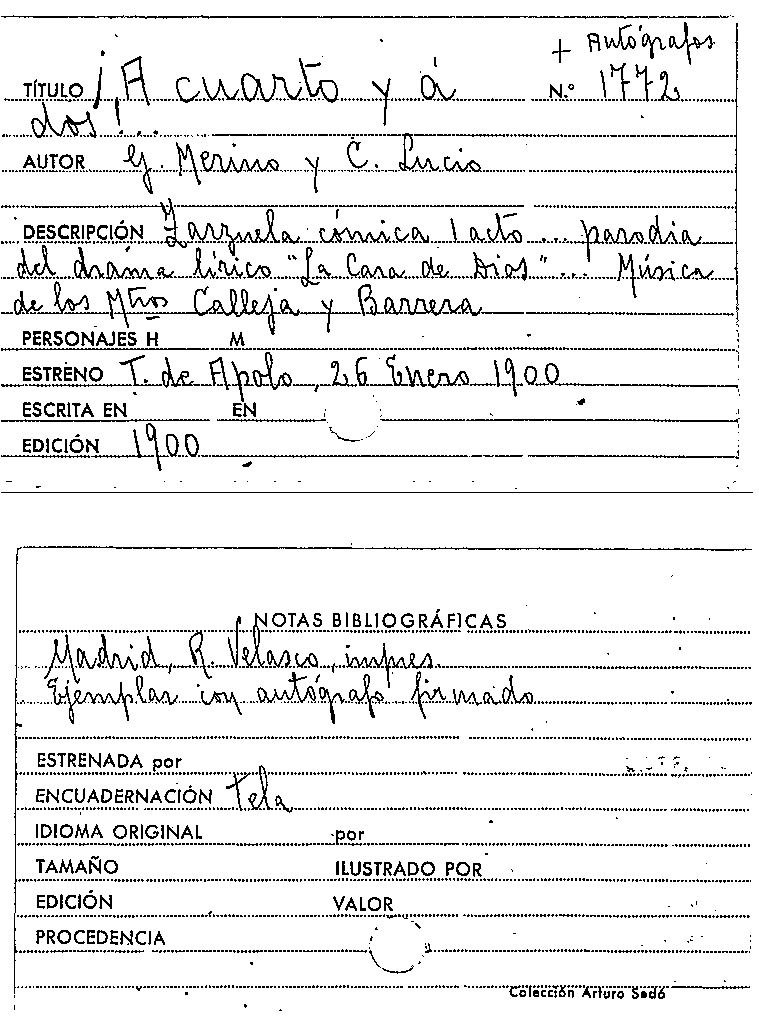 + Autógrafos
TÍTULO ¡A cuarto y á N.º 1772
dos!...
AUTOR G. Merino y C. Lucio
DESCRIPCIÓN Zarzuela cómica 1 acto ... parodia
del drama lírico "La Cara de Dios" ... Música
de los Mtros Calleja y Barrera
PERSONAJES H M
ESTRENO T. de Apolo, 26 Enero 1900
ESCRITA EN EN
EDICIÓN 1900
NOTAS BIBLIOGRÁFICAS
Madrid, R. Velasco, impres.
Ejemplar con autógrafo firmado
ESTRENADA por
ENCUADERNACIÓN tela
IDIOMA ORIGINAL por
TAMAÑO ILUSTRADO POR
EDICIÓN VALOR
PROCEDENCIA
Colección Arturo Sedó